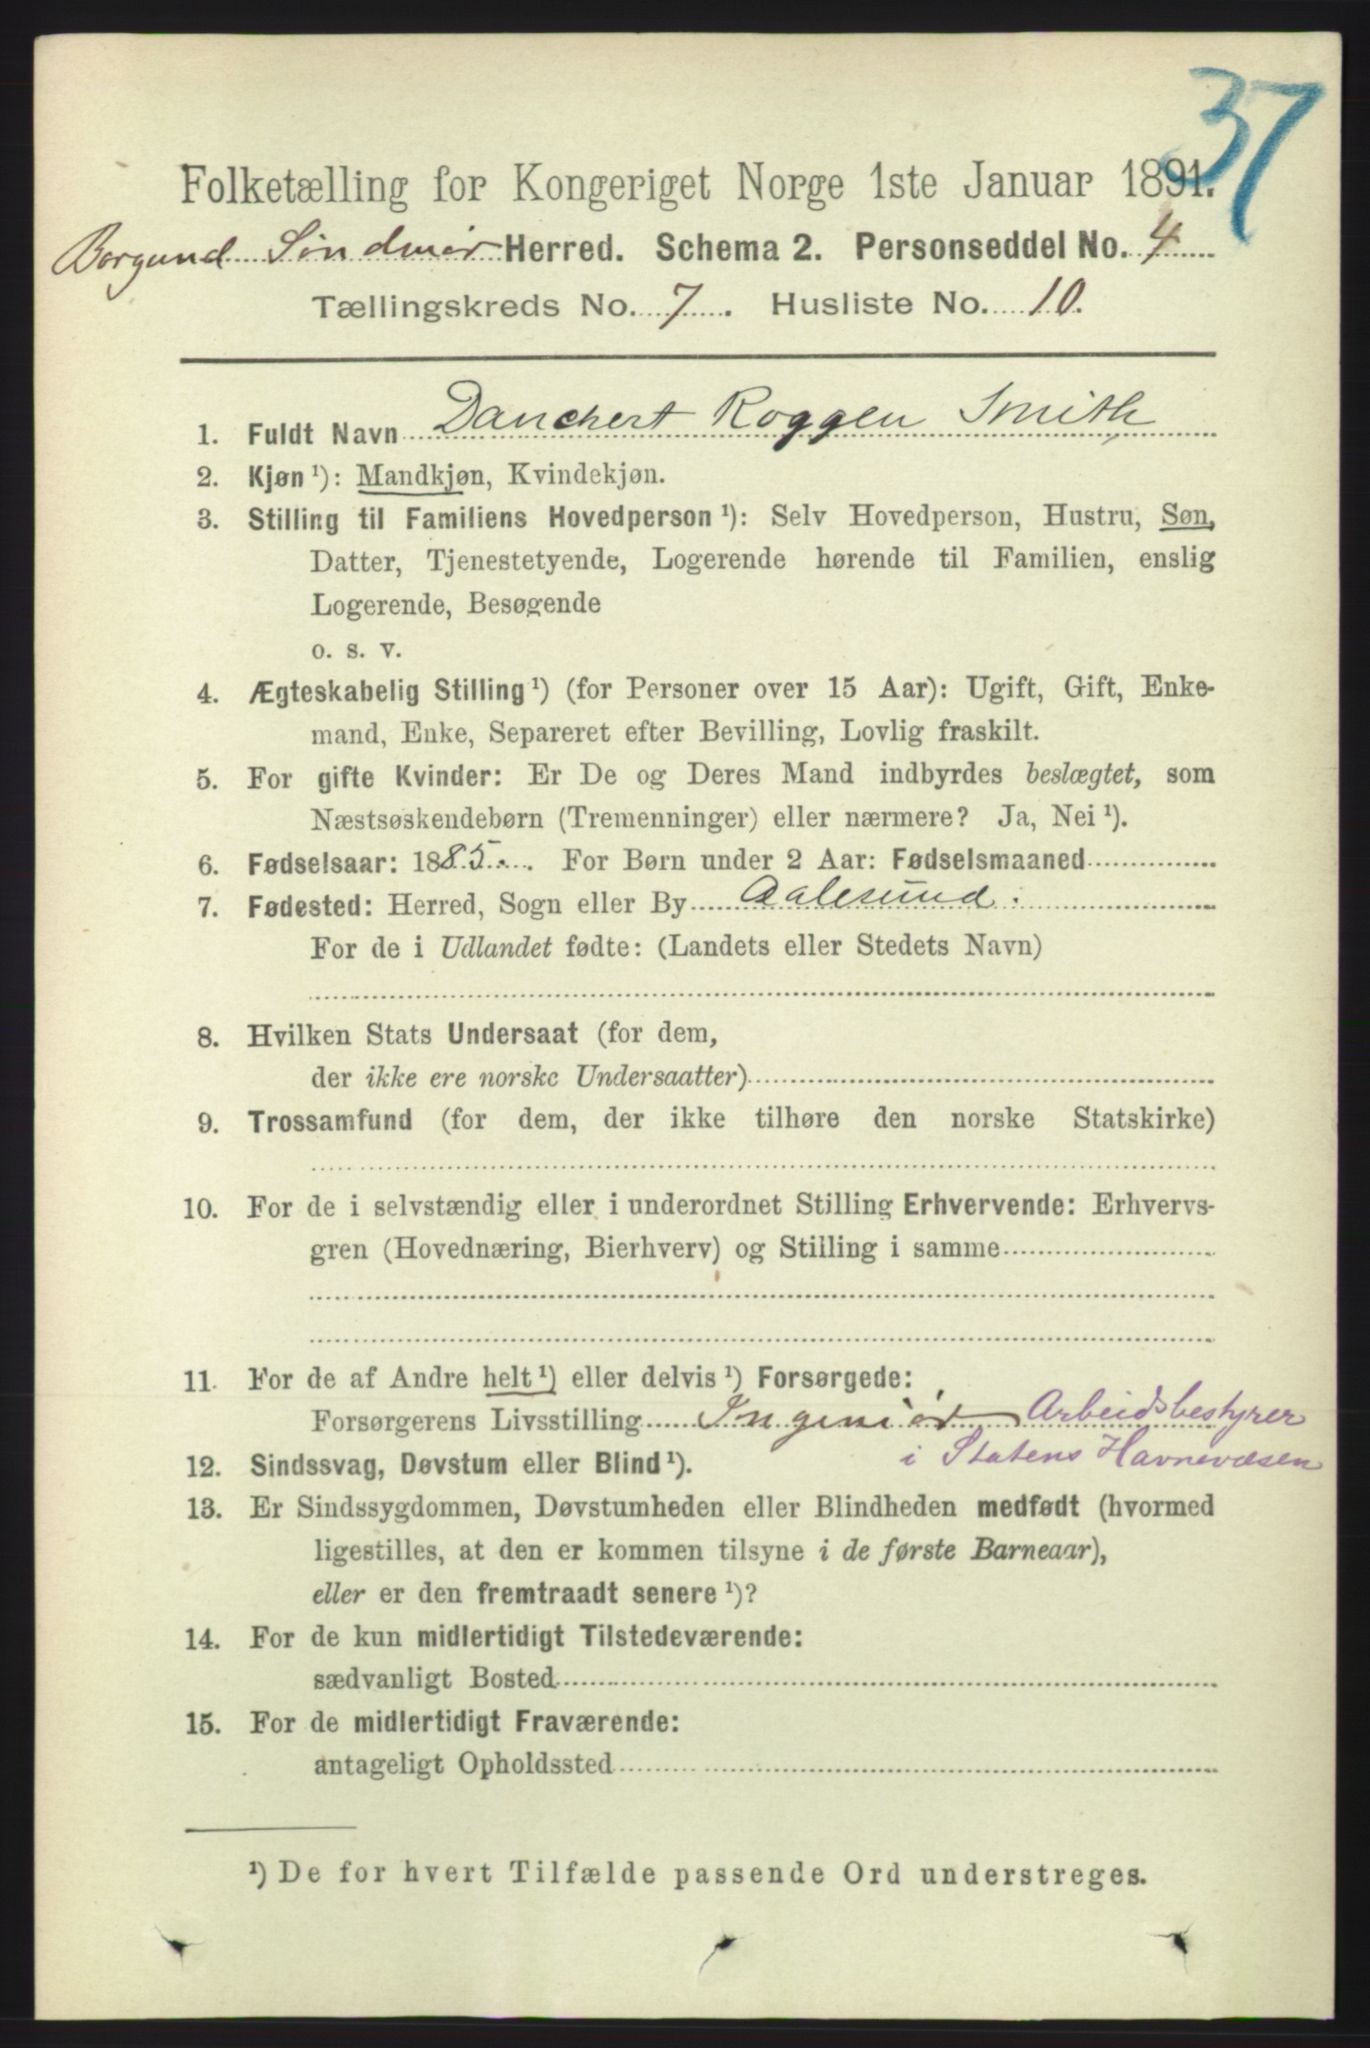 37
Folketælling for Kongeriget Norge 1ste Januar 1891.
Borgund Søndmør Herred. Schema 2. Personseddel No. 4
Tællingskreds No. 7. Husliste No. 10.
1. Fuldt Navn Danchert Roggen Smith
2. Kjøn ¹): Mandkjøn, Kvindekjøn.
3. Stilling til Familiens Hovedperson ¹): Selv Hovedperson, Hustru, Søn,
Datter, Tjenestetyende, Logerende hørende til Familien, enslig
Logerende, Besøgende
o. s. v.
4. Ægteskabelig Stilling ¹) (for Personer over 15 Aar): Ugift, Gift, Enke-
mand, Enke, Separeret efter Bevilling, Lovlig fraskilt.
5. For gifte Kvinder: Er De og Deres Mand indbyrdes beslægtet, som
Næstsøskendebørn (Tremenninger) eller nærmere? Ja, Nei ¹).
6. Fødselsaar: 1885. For Børn under 2 Aar: Fødselsmaaned
7. Fødested: Herred, Sogn eller By Aalesund.
For de i Udlandet fødte: (Landets eller Stedets Navn)
8. Hvilken Stats Undersaat (for dem,
der ikke ere norske Undersaatter)
9. Trossamfund (for dem, der ikke tilhøre den norske Statskirke)
10. For de i selvstændig eller i underordnet Stilling Erhvervende: Erhvervs-
gren (Hovednæring, Bierhverv) og Stilling i samme
11. For de af Andre helt ¹) eller delvis ¹) Forsørgede:
Forsørgerens Livsstilling Ingeniør Arbeidsbestyrer
i Statens Havnevæsen
12. Sindssvag, Døvstum eller Blind ¹).
13. Er Sindssygdommen, Døvstumheden eller Blindheden medfødt (hvormed
ligestilles, at den er kommen tilsyne i de første Barneaar),
eller er den fremtraadt senere ¹)?
14. For de kun midlertidigt Tilstedeværende:
sædvanligt Bosted
15. For de midlertidigt Fraværende:
antageligt Opholdssted
¹) De for hvert Tilfælde passende Ord understreges.